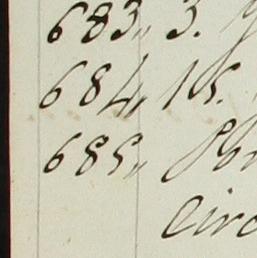 683,, 3.
684,, 1 S.
685,,
Circ